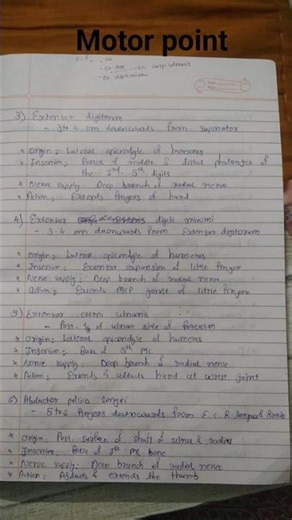 Motor point
3) Extensor digitorum
- 3 to 4 cm downwards from supinator
* Origin: Lateral epicondyle of humerus
* Insertion: Bases of middle & distal phalanges of
the 2nd 5th digits
* Nerve supply: Deep branch of radial nerve
* Action: Extends fingers of hand
4) Extensor digiti minimi
- 3-4 cm downwards from Extensor digitorum
* origin: Lateral epicondyle of humerus
* Insertion: Extensor expansion of little finger
* Nerve supply: Deep branch of radial nerve
* action: Extends MCP joints of little finger
5) Extensor carpi ulnaris
- Post. of ulnar side of forearm
* Origin: Lateral epicondyle of humerus
* Insertion: Base of 5th MC
* Nerve supply: Deep branch of radial nerve
* Action: Extends & adducts hand at wrist joint
6) Abductor pollicis longus
- 5 to 6 fingers downwards from E.C.R longus & brevis
* origin: Post. surface of shaft of ulna & radius
* Insertion: Base of 1st MC bone
* Nerve supply: Deep branch of radial nerve
* Action: Abducts & extends the thumb